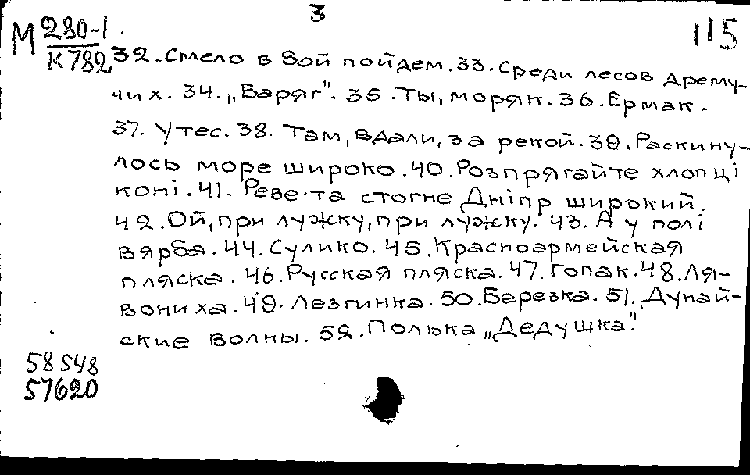 3
М 280-1
К 782
115
32. Смело в бой пойдем. 33. Среди лесов дрему-
чих. 34. „Варяг". 35. Ты, моряк. 36. Ермак.
37. Утес. 38. Там, вдали, за рекой. 39. Раскину-
лось море широко. 40. Розпрягайте хлопці
коні. 41. Реве та стогне Дніпр широкий.
42. Ой, при лужку, при лужку. 43. А у полі
вярба. 44. Сулико. 45. Красноармейская
пляска. 46. Русская пляска. 47. Гопак. 48. Ля-
вониха. 49. Лезгинка. 50. Березка. 51. Дунай-
ские волны. 52. Полька „Дедушка".
58548
57620